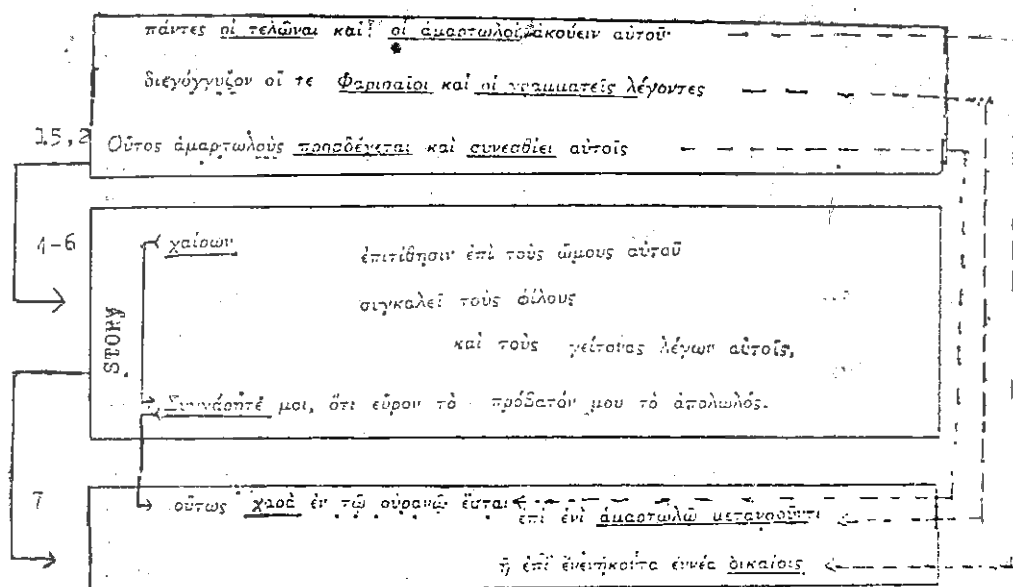 πάντες οἱ τελῶναι καὶ οἱ ἁμαρτωλοὶ ἀκούειν αὐτοῦ·
διεγόγγυζον οἵ τε Φαρισαῖοι καὶ οἱ γραμματεῖς λέγοντες
15,2 Οὗτος ἁμαρτωλοὺς προσδέχεται καὶ συνεσθίει αὐτοῖς
4-6
STORY
χαίρων ἐπιτίθησιν ἐπὶ τοὺς ὤμους αὐτοῦ
συγκαλεῖ τοὺς φίλους
καὶ τοὺς γείτονας λέγων αὐτοῖς,
Συγχάρητέ μοι, ὅτι εὗρον τὸ πρόβατόν μου τὸ ἀπολωλός.
7
οὕτως χαρὰ ἐν τῷ οὐρανῷ ἔσται
ἐπὶ ἑνὶ ἁμαρτωλῷ μετανοοῦντι
ἢ ἐπὶ ἐνενήκοντα ἐννέα δικαίοις